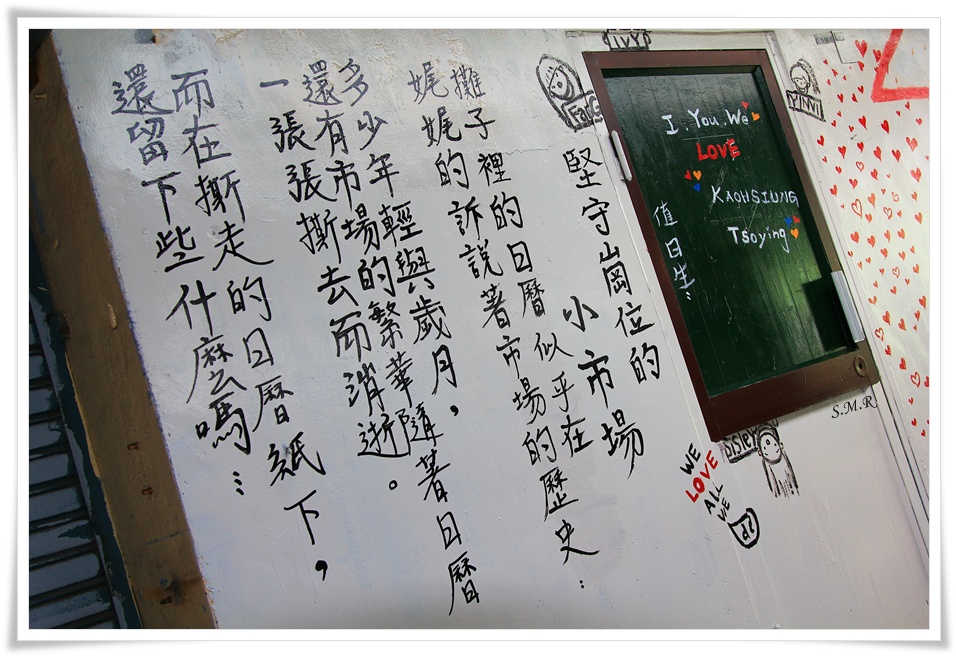 堅守崗位的
小市場
攤子裡的日曆似乎在
娓娓的訴說著市場的歷史:
多少年輕與歲月,
還有市場的繁華隨著日曆
一張張撕去而消逝。
而在撕走的日曆紙下,
還留下些什麼嗎…
IVY
I. You. We
LOVE
KAOHSIUNG
Tsoying
值日生:
S.M.R
Sisley
WE
LOVE
ALL
WE